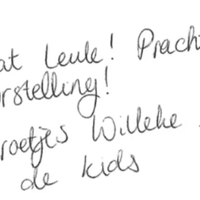 at Leuke! Pracht
rstelling!
roetjes Willeke
de kids